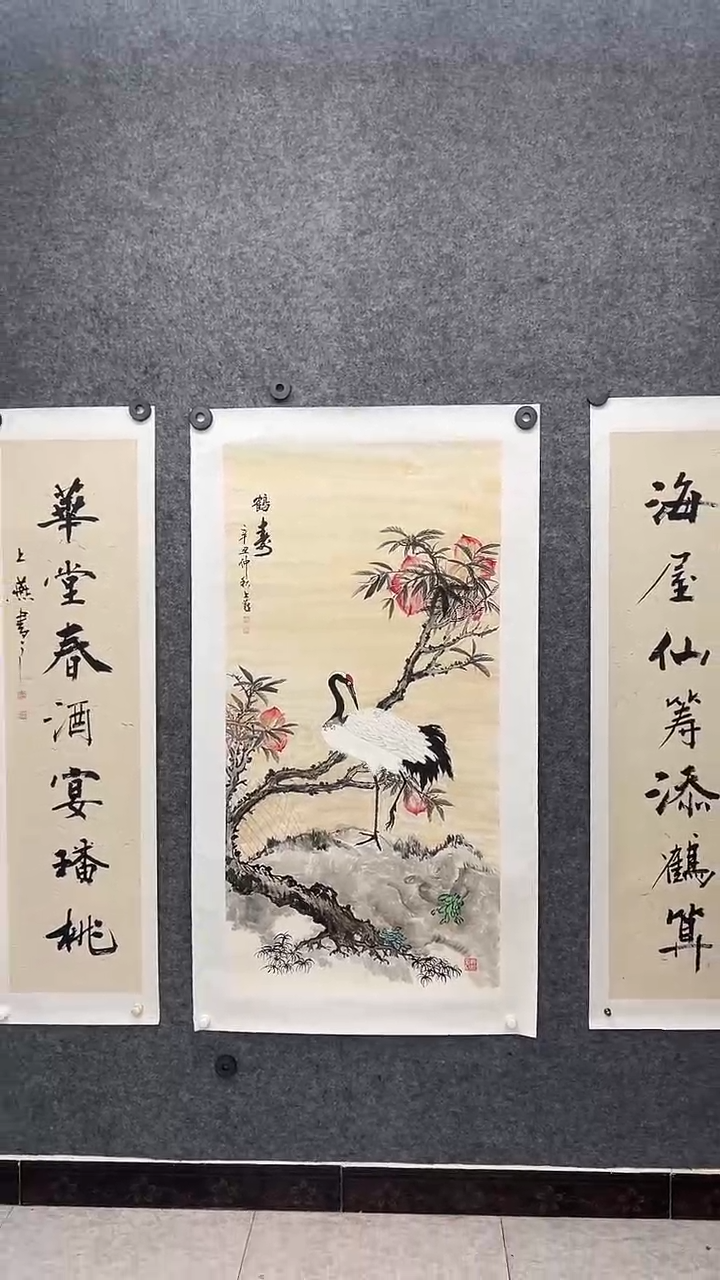 海屋仙筹添鶴算
鶴壽
辛丑仲秋上燕
華堂春酒宴璠桃
上燕書